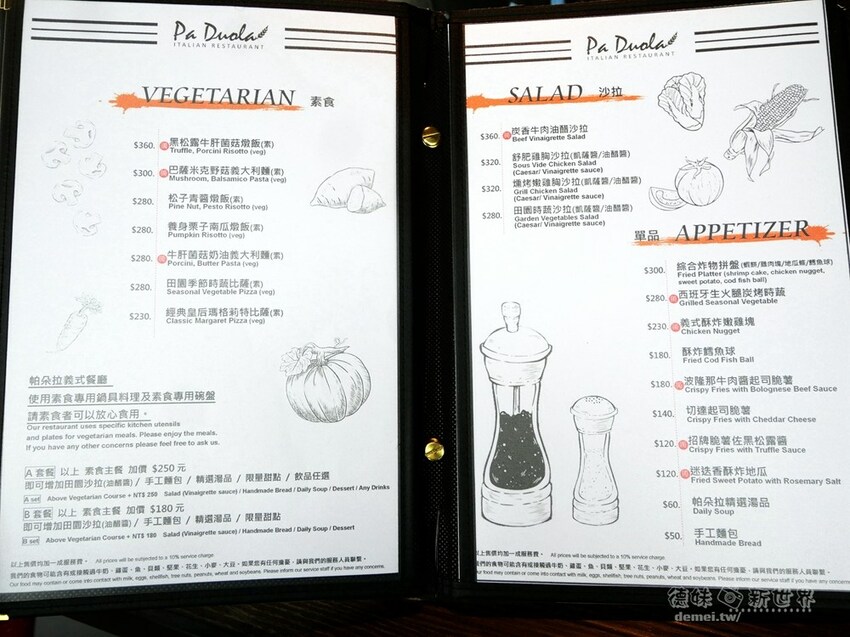 Pa Duola
ITALIAN RESTAURANT
VEGETARIAN 素食
$360. 黑松露牛肝菌菇燉飯(素)
Truffle, Porcini Risotto (veg)
$300. 巴薩米克野菇義大利麵(素)
Mushroom, Balsamico Pasta (veg)
$280. 松子青醬燉飯(素)
Pine Nut, Pesto Risotto (veg)
$280. 養身栗子南瓜燉飯(素)
Pumpkin Risotto (veg)
$280. 牛肝菌菇奶油義大利麵(素)
Porcini, Butter Pasta (veg)
$280. 田園季節時蔬比薩(素)
Seasonal Vegetable Pizza (veg)
$230. 經典皇后瑪格莉特比薩(素)
Classic Margaret Pizza (veg)
帕朵拉義式餐廳
使用素食專用鍋具料理及素食專用碗盤
請素食者可以放心食用。
Our restaurant uses specific kitchen utensils
and plates for vegetarian meals. Please enjoy the meals.
If you have any other concerns please feel free to ask us.
A 套餐 以上 素食主餐 加價 $250 元
即可增加田園沙拉(油醋醬) / 手工麵包 / 精選湯品 / 限量甜點 / 飲品任選
A set Above Vegetarian Course + NT$ 250 Salad (Vinaigrette sauce) / Handmade Bread / Daily Soup / Dessert / Any Drinks
B 套餐 以上 素食主餐 加價 $180 元
即可增加田園沙拉(油醋醬) / 手工麵包 / 精選湯品 / 限量甜點
B set Above Vegetarian Course + NT$ 180 Salad (Vinaigrette sauce) / Handmade Bread / Daily Soup / Dessert
以上售價均加一成服務費。 All prices will be subjected to a 10% service charge.
我們的食物可能含有或接觸過牛奶、雞蛋、魚、貝類、堅果、花生、小麥、大豆。如果您有任何擔憂，請與我們的服務人員聯繫。
Our food may contain or come into contact with milk, eggs, shellfish, tree nuts, peanuts, wheat and soybeans. Please inform our service staff if you have any concerns.
Pa Duola
ITALIAN RESTAURANT
SALAD 沙拉
$360. 炭香牛肉油醋沙拉
Beef Vinaigrette Salad
$320. 舒肥雞胸沙拉(凱薩醬/油醋醬)
Sous Vide Chicken Salad
(Caesar/ Vinaigrette sauce)
$320. 燻烤嫩雞沙拉(凱薩醬/油醋醬)
Grill Chicken Salad
(Caesar/ Vinaigrette sauce)
$280. 田園時蔬沙拉(凱薩醬/油醋醬)
Garden Vegetables Salad
(Caesar/ Vinaigrette sauce)
單品 APPETIZER
$300. 綜合炸物拼盤(蝦餅/雞肉塊/地瓜條/鱈魚球)
Fried Platter (shrimp cake, chicken nugget,
sweet potato, cod fish ball)
$280. 西班牙生火腿炭烤時蔬
Grilled Seasonal Vegetable
$230. 義式酥炸嫩雞塊
Chicken Nugget
$180. 酥炸鱈魚球
Fried Cod Fish Ball
$180. 波隆那牛肉醬起司脆薯
Crispy Fries with Bolognese Beef Sauce
$140. 切達起司脆薯
Crispy Fries with Cheddar Cheese
$120. 招牌脆薯佐黑松露醬
Crispy Fries with Truffle Sauce
$120. 迷迭香酥炸地瓜
Fried Sweet Potato with Rosemary Salt
$60. 帕朵拉精選湯品
Daily Soup
$50. 手工麵包
Handmade Bread
以上售價均加一成服務費。 All prices will be subjected to a 10% service charge.
我們的食物可能含有或接觸過牛奶、雞蛋、魚、貝類、堅果、花生、小麥、大豆。如果您有任何擔憂，請與我們的服務人員聯繫。
Our food may contain or come into contact with milk, eggs, shellfish, tree nuts, peanuts, wheat and soybeans. Please inform our service staff if you have any concerns.
德味 新世界
demei.tw/